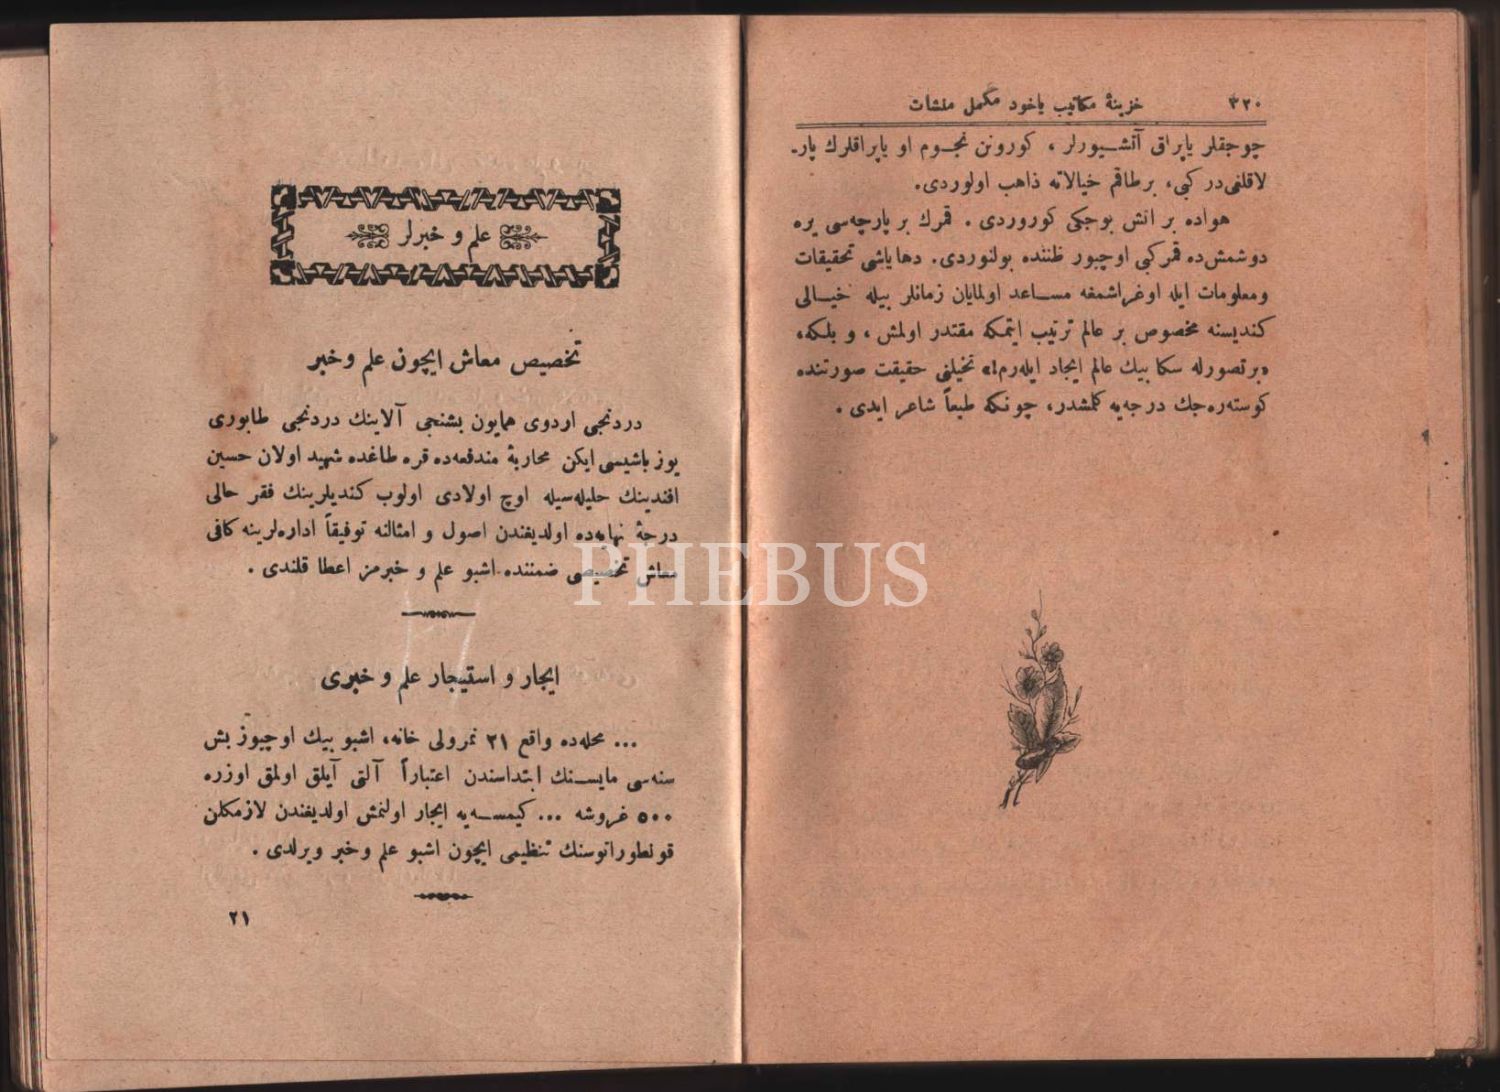 ٣٢٠
خزینهٔ مکاتیب یاخود مکمل منشات
چوجقلر یاپراق آتشیورلر، کورونن نجوم او یاپراقلرك پار-
لاقلغی در کبی، بر طاقم خیالاته ذاهب اولوردی.
هواده بر اتش بوجکی کوروردی. قمرك بر پارچه‌سی یره
دوشمش ده قمر کبی اوچیور ظننده بولنوردی. دها یاشی تحقیقات
و معلومات ایله اوغراشمغه مساعد اولمایان زمانلر بیله خیالی
کندیسنه مخصوص بر عالم ترتیب ایتمکه مقتدر اولمش، و بلکه،
«بر تصورله سکا بیك عالم ایجاد ایله‌رم!» تخیلنی حقیقت صورتنده
کوسته‌ره‌جك درجه‌یه کلمشدر، چونکه طبعاً شاعر ایدی.
علم و خبرلر
تخصیص معاش ایچون علم و خبر
دردنجی اردوی همایون بشنجی آلاینك دردنجی طابوری
یوزباشیسی ایکن محاربهٔ مندفعه‌ده قره طاغده شهید اولان حسین
افندینك حلیله‌سیله اوچ اولادی اولوب کندیلرینك فقر حالی
درجهٔ نهایه‌ده اولدیغندن اصول و امثالنه توفیقاً اداره‌لرینه کافی
معاش تخصیصی ضمننده اشبو علم و خبرمز اعطا قلندی.
ایجار و استیجار علم و خبری
... محله‌ده واقع ٢١ نمرولی خانه، اشبو بیك اوچیوز بش
سنه‌سی مایسنك ابتداسندن اعتباراً آلتی آیلق اولمق اوزره
٥٠٠ غروشه ... کیمسه‌یه ایجار اولنمش اولدیغندن لازمکلن
قونطوراتوسنك تنظیمی ایچون اشبو علم و خبر ویرلدی.
٢١
PHEBUS